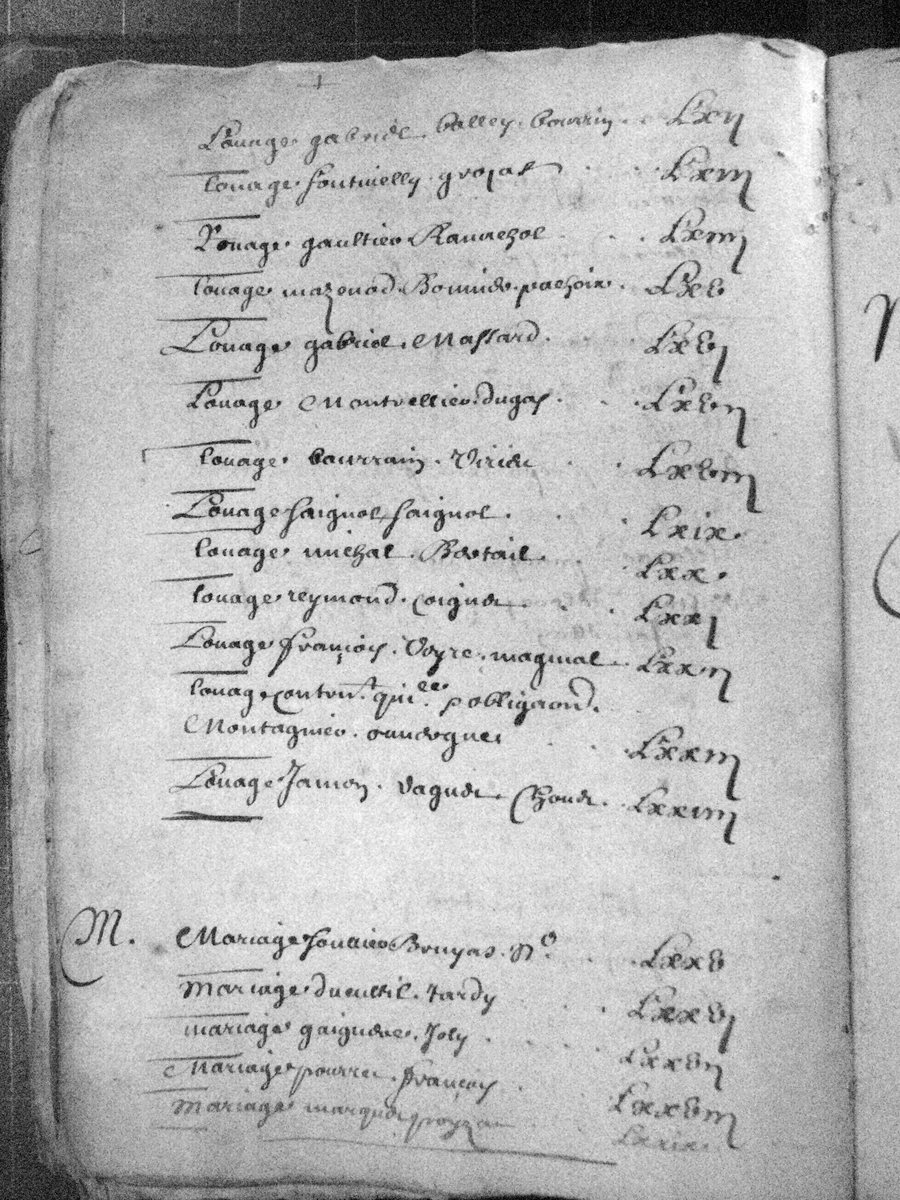 Louage gabriel valley bourrin . Lxij
louage fontvielly grojat . . Lxiij
Louage gaultier Ranchol . . Lxiiij
louage mazenod . Bonnide . pachoix . Lxv
Louage gabriel . Massard . Lxvj
Louage Montvellier . dugas . . Lxvij
louage bourrain . Viride . . Lxviij
Louage saignol saignol . . Lxix .
louage michal . Bertail . . Lxx .
louage reymond . Coignet . . Lxxj
Louage françois . Voyre . magnial . Lxxij
louage qui p obligaon .
Montagnier . . . Lxxiij
Louage Jamen . vaguet . Chovet . Lxxiiij
M. Mariage fournier Bruyas . . Lxxv
Mariage ducultil . tardy . . Lxxvj
mariage gaignere . Joly . . . Lxxvij
Mariage pourret . françois . Lxxviij
Mariage marquet Lxxix .